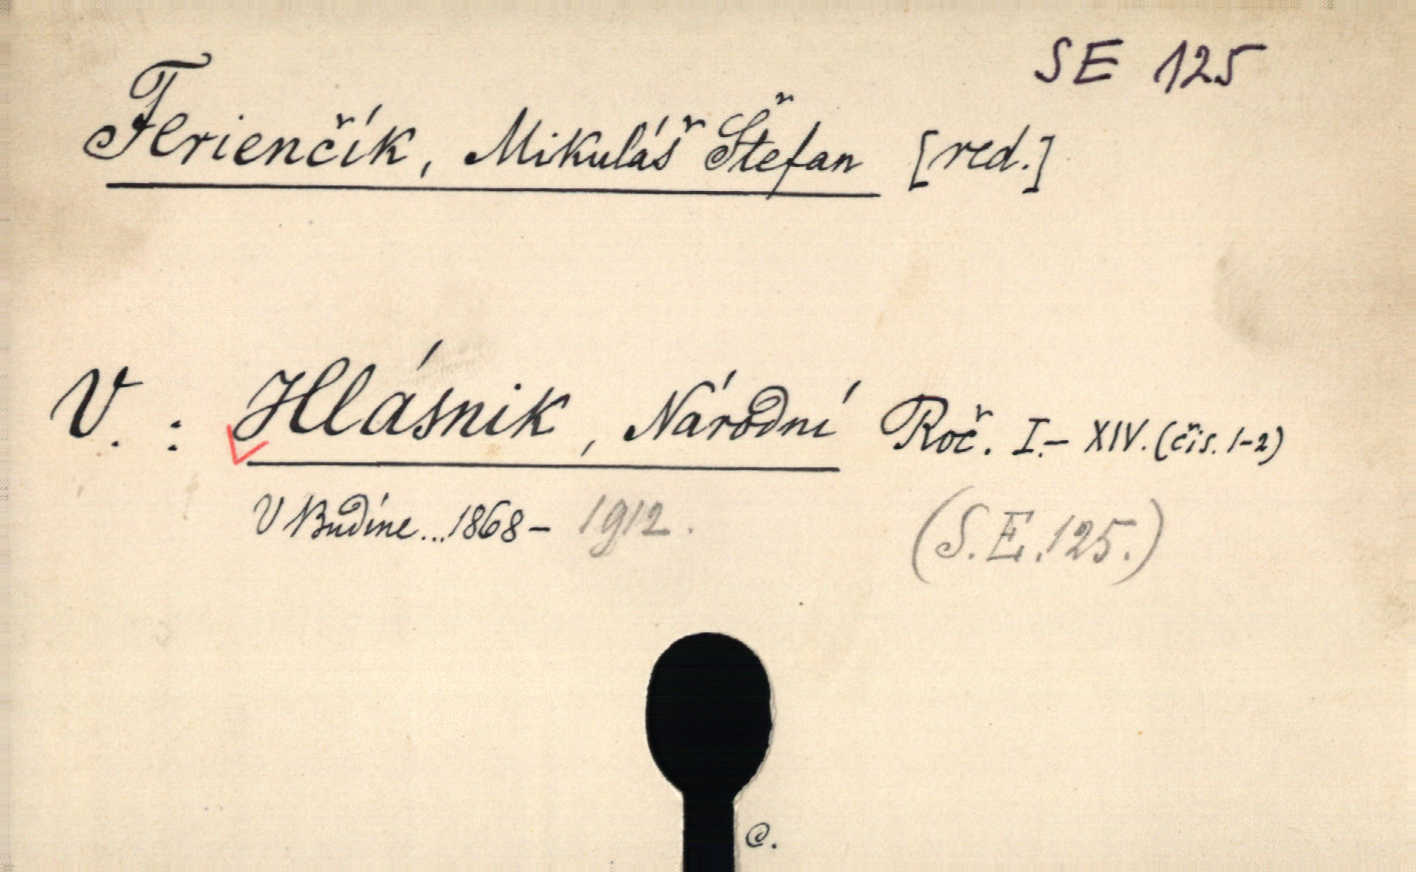 SE 125
Ferienčík, Mikuláš Štefan [red.]
V. : Hlásnik, Národní Roč. I.- XIV. (čís. 1-2)
V Budíne... 1868- 1912.
(S. E. 125.)
C.